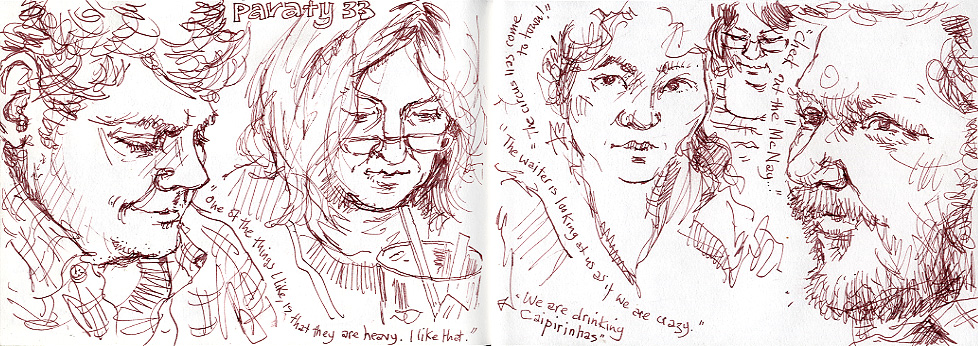 Paraty 33
"One of the things I like, is that they are heavy. I like that."
"The circus has come
to town!"
"The waiter is looking at us as if we are crazy."
"We are drinking
Caipirinhas"
"Chek out the